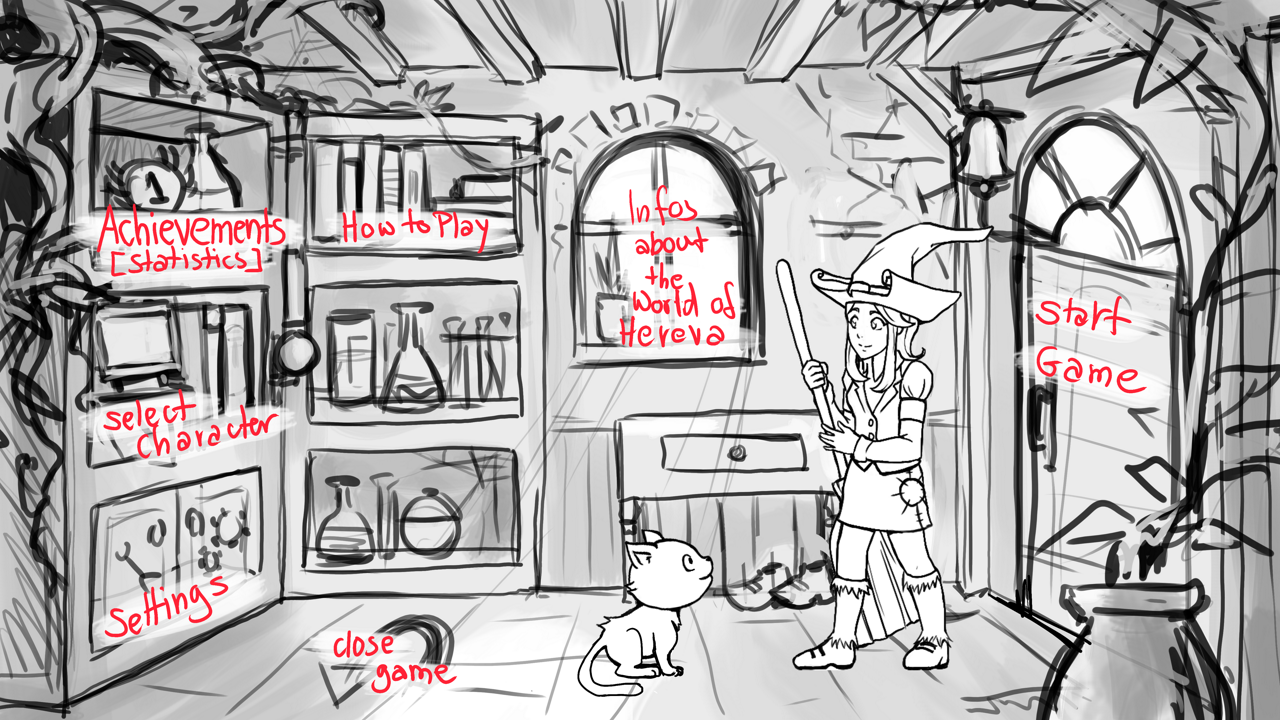 1
Achievements
[statistics]
How to Play
Infos
about
the
World of
Hereva
start
Game
select
Character
Settings
close
game